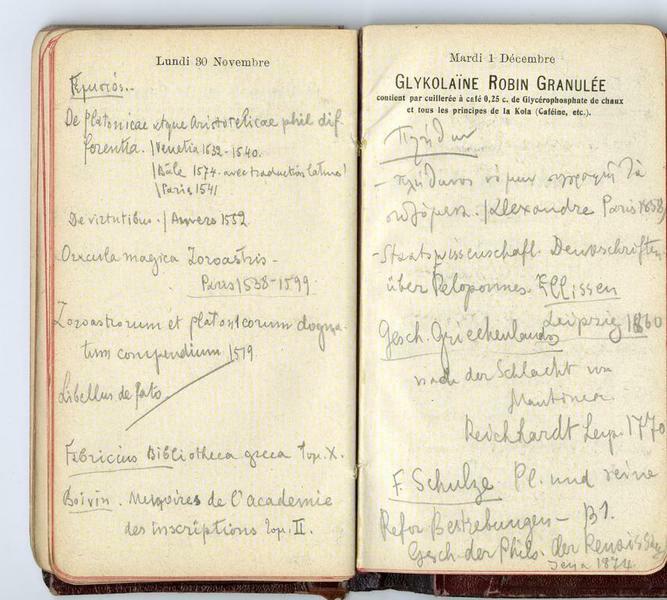 Lundi 30 Novembre
De Platonicae atque Aristotelicae phil dif
ferentia. / Venetia 1532-1540.
/ Bâle 1574. avec traduction latine /
/ Paris 1541
De virtutibus. / Anvers 1552
Oracula magica Zoroastris -
Paris 1538-1599
Zoroastrorum et platonicorum dogma-
tum compendium 1519
Libellus de fato.
Fabricius Bibliotheca greca Τομ. X.
Boivin. Memoires de l'academie
des inscriptions Τομ. II.
Mardi 1 Décembre
GLYKOLAÏNE ROBIN GRANULÉE
contient par cuillerée à café 0,25 c. de Glycérophosphate de chaux
et tous les principes de la Kola (Caféine, etc.).
Πλήθων
- Πλήθωνος νόμων συγγραφή τὰ
σωζόμενα. / Alexandre Paris 1858
- Staatswissenschaft. Denkschriften
über Peloponnes. Ellissen
Leipzig 1860
Gesch. Griechenlands
nach der Schlacht von
Mantinea
Reichhardt Leip. 1770
F. Schulze Pl. und seine
Refor Bestrebungen - B1.
Gesch der Phils. der Renaiss
Jena 1874